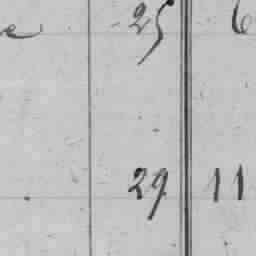 25 6
29 11